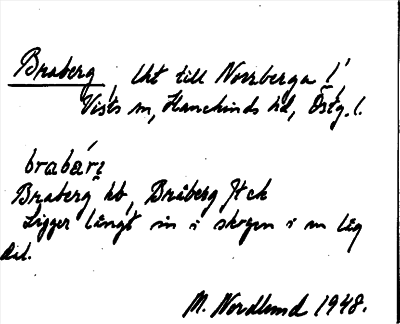 Braberg, lht till Norrberga l!
Vists sn, Hanekinds hd, Östg. l.
brabárı
Braberg kb, Bråberg Jt ck
Ligger långt in i skogen i en låg
del.
M. Nordlund 1948.